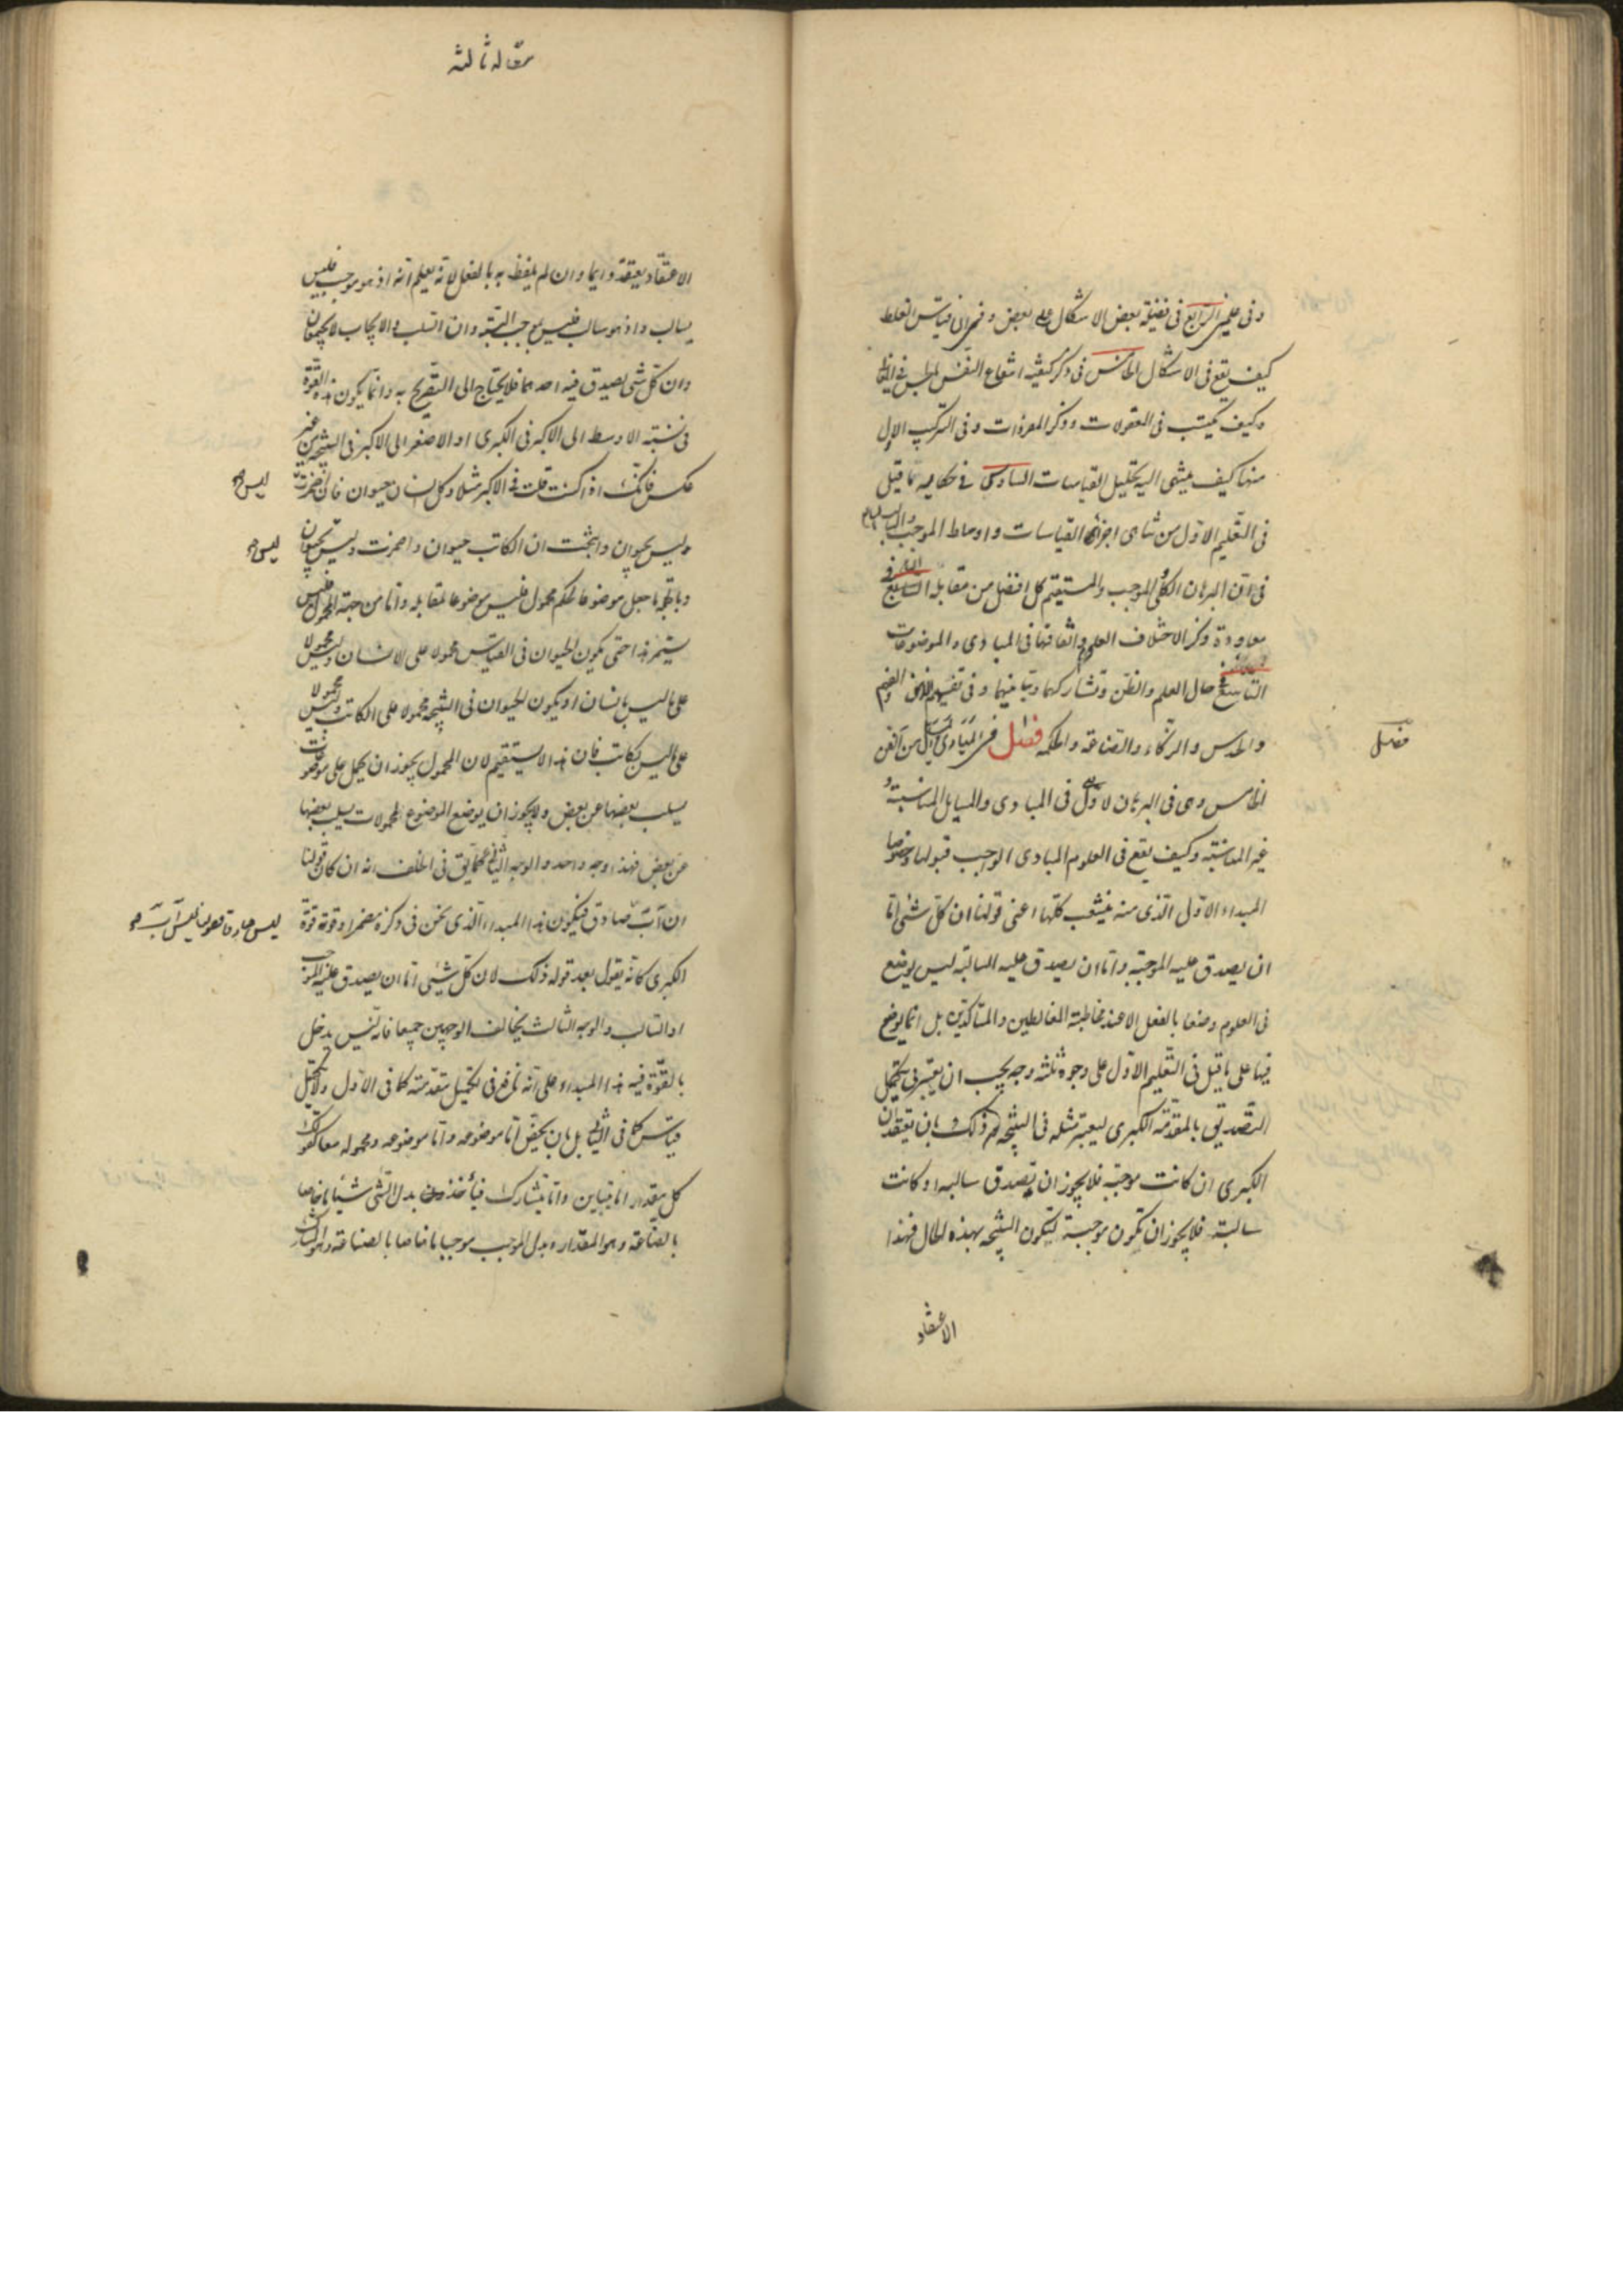 وفى علمى الرابع فى فضيلة بعض الاشكال على بعض وفى ان قياس الغلط
كيف يقع فى الاشكال الخامس فى ذكر كيفية انتفاع النفس بالحس فى
وكيف يكتسب فى المعقولات وذكر المفردات وفى التركيب الاول
منها كيف ينتهى اليه تحليل القياسات السادس فى حكاية ما قيل
فى التعليم الاول من تناهى اجزاء القياسات واوساط الموجب والسالب
فى ان البرهان الكلى والموجب والمستقيم كل افضل من مقابله السابع
معاودة ذكر الاختلاف العلوم واتفاقها فى المبادى والموضوعات
التاسع فى حال العلم والظن وتشاركهما وتباينهما وفى تفهيم الذهن والفهم
والحدس والذكاء والصناعة والحكمة فصل فى المبادى والمسائل من الفن
فصل
الخامس وهى فى البرهان الاول فى المبادى والمسايل المناسبة و
غير المناسبة وكيف يقع فى العلوم المبادى الواجب قبولها وخصوصا
المبداء الاول الذى منه ينشعب كلها اعنى قولنا ان كل شئ اما
ان يصدق عليه الموجبة واما ان يصدق عليه السالبة ليس يوضع
فى العلوم وضعا بالفعل الا عند مخاطبة المغالطين والمناكدين بل انما يوضع
فيها على ما قيل فى التعليم الاول على وجوه ثلثة وجه يجب ان يعتبر فى تكميل
التصديق بالمقدمة الكبرى ليعتبر مثله فى النتيجة وذلك بان يعتقد ان
الكبرى ان كانت موجبة فلا يجوز ان تصدق سالبه او كانت
سالبة فلا يجوز ان تكون موجبة لتكون النتيجة بهذه الحال فهذا
الاعتقاد
مقاله ثالثه
الاعتقاد يعتقد دايما وان لم يلفظ به بالفعل لانه يعلم انه اذ هو موجب فليس
بسالب واذ هو سالب فليس بموجب البتة وان السلب والايجاب لا يجتمعان
وان كل شئ يصدق فيه احدهما فلا يحتاج الى التصريح به وانما يكون هذه القوة
فى نسبة الاوسط الى الاكبر فى الكبرى او الاصغر الى الاكبر فى النتيجة من غير
عكس فانك اذا كنت قلت فى الاكبر مثلا وكل انسان حيوان فان اضمرت
ليس
وليس بحيوان وانتجت ان الكاتب حيوان واضمرت وليس بحيوان
ليس
وبالجملة ما جعل موضوعا لحكم محمول فليس موضوعا لمقابله واما من جهة المحمول فليس
يستمر هذا حتى يكون الحيوان فى القياس محمولا على الانسان وليس محمولا
على ما ليس بانسان او يكون الحيوان فى النتيجة محمولا على الكاتب وليس محمولا
على ما ليس بكاتب فان هذا لا يستقيم لان المحمول يجوز ان يحمل على موضوعات
يسلب بعضها عن بعض ولا يجوز ان يوضع الموضوع لمحمولات يسلب بعضها
عن بعض فهذا وجه واحد والوجه الثانى على ما يليق فى الخلف انه ان كان قولنا
ان آ ب صادق فيكون هذا المبداء الذى نحن فى ذكره مضمرا وقوته قوة
ليس صادقا فقولنا ليس آ ب
الكبرى كانه يقول بعد قوله ذلك لان كل شئ اما ان يصدق عليه الموجب
او السالب والوجه الثالث يخالف الوجهين جميعا فانه ليس يدخل
بالقوة فيه هذا المبداء على انه نافع فى تكميل مقدمته كما فى الاول ولا تكميل
قياس كما فى الثانى بل بان يخص اما موضوعه واما موضوعه ومحموله معا كقولك
كل مقدار اما مباين واما مشارك فيأخذ بدل الشئ شيئا ما خاصا
بالصناعة وهو المقدار وبدل الموجب موجبا ما خاصا بالصناعة وهو المشارك